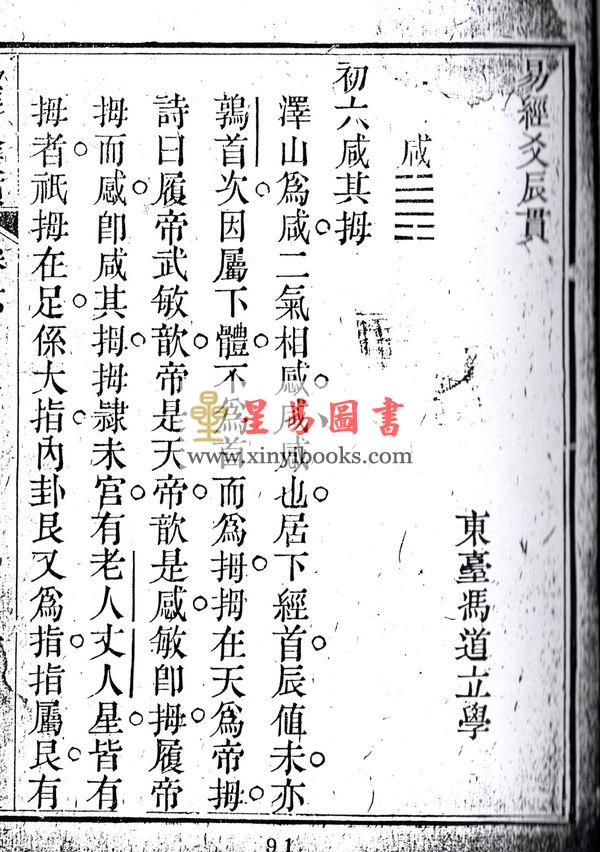 易經爻辰貫
東臺馮道立學
咸䷞
初六咸其拇
澤山爲咸二氣相感咸感也居下經首辰值未亦
鶉首次因屬下體不爲首而爲拇拇在天爲帝拇
詩曰履帝武敏歆帝是天帝歆是感敏卽拇履帝
拇而感卽咸其拇拇隸未宮有老人丈人星皆有
拇者祇拇在足係大指內卦艮又爲指指屬民有
星易圖書
www.xinyibooks.com
91